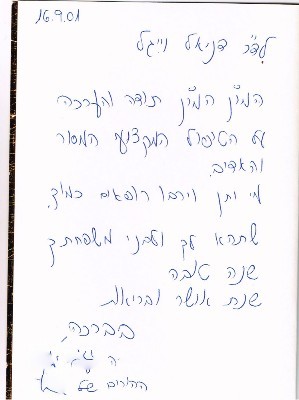 16.9.01
לד"ר דניאל וייגל
המון המון תודה והערכה
על הטיפול המקצועי המסור
והאדיב.
מי יתן וירבו רופאים כמוך.
שתהא לך ולבני משפחתך
שנה טובה
שנת אושר ובריאות
בברכה,
ההורים של